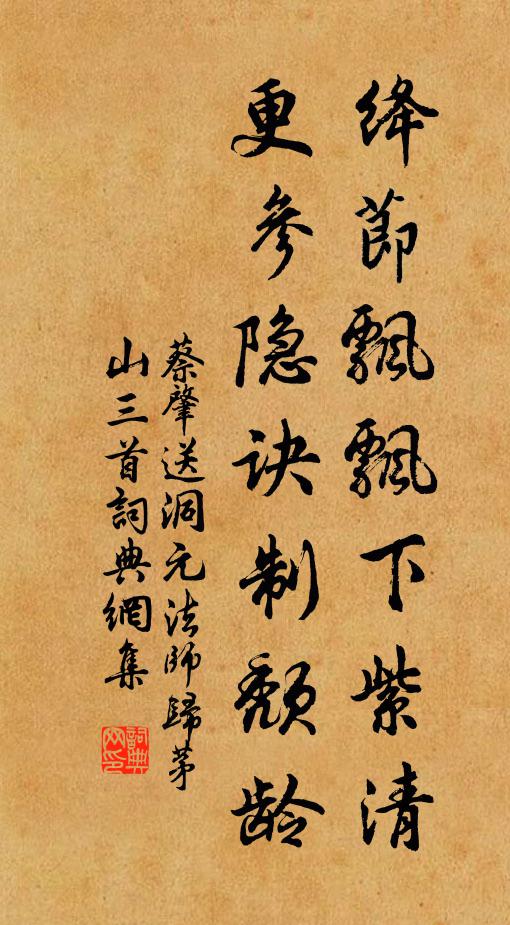 绛節飄飄下紫清
更參隐诀制颓龄
蔡肇送洞元法師歸茅
山三首詞典網集
詞典網印